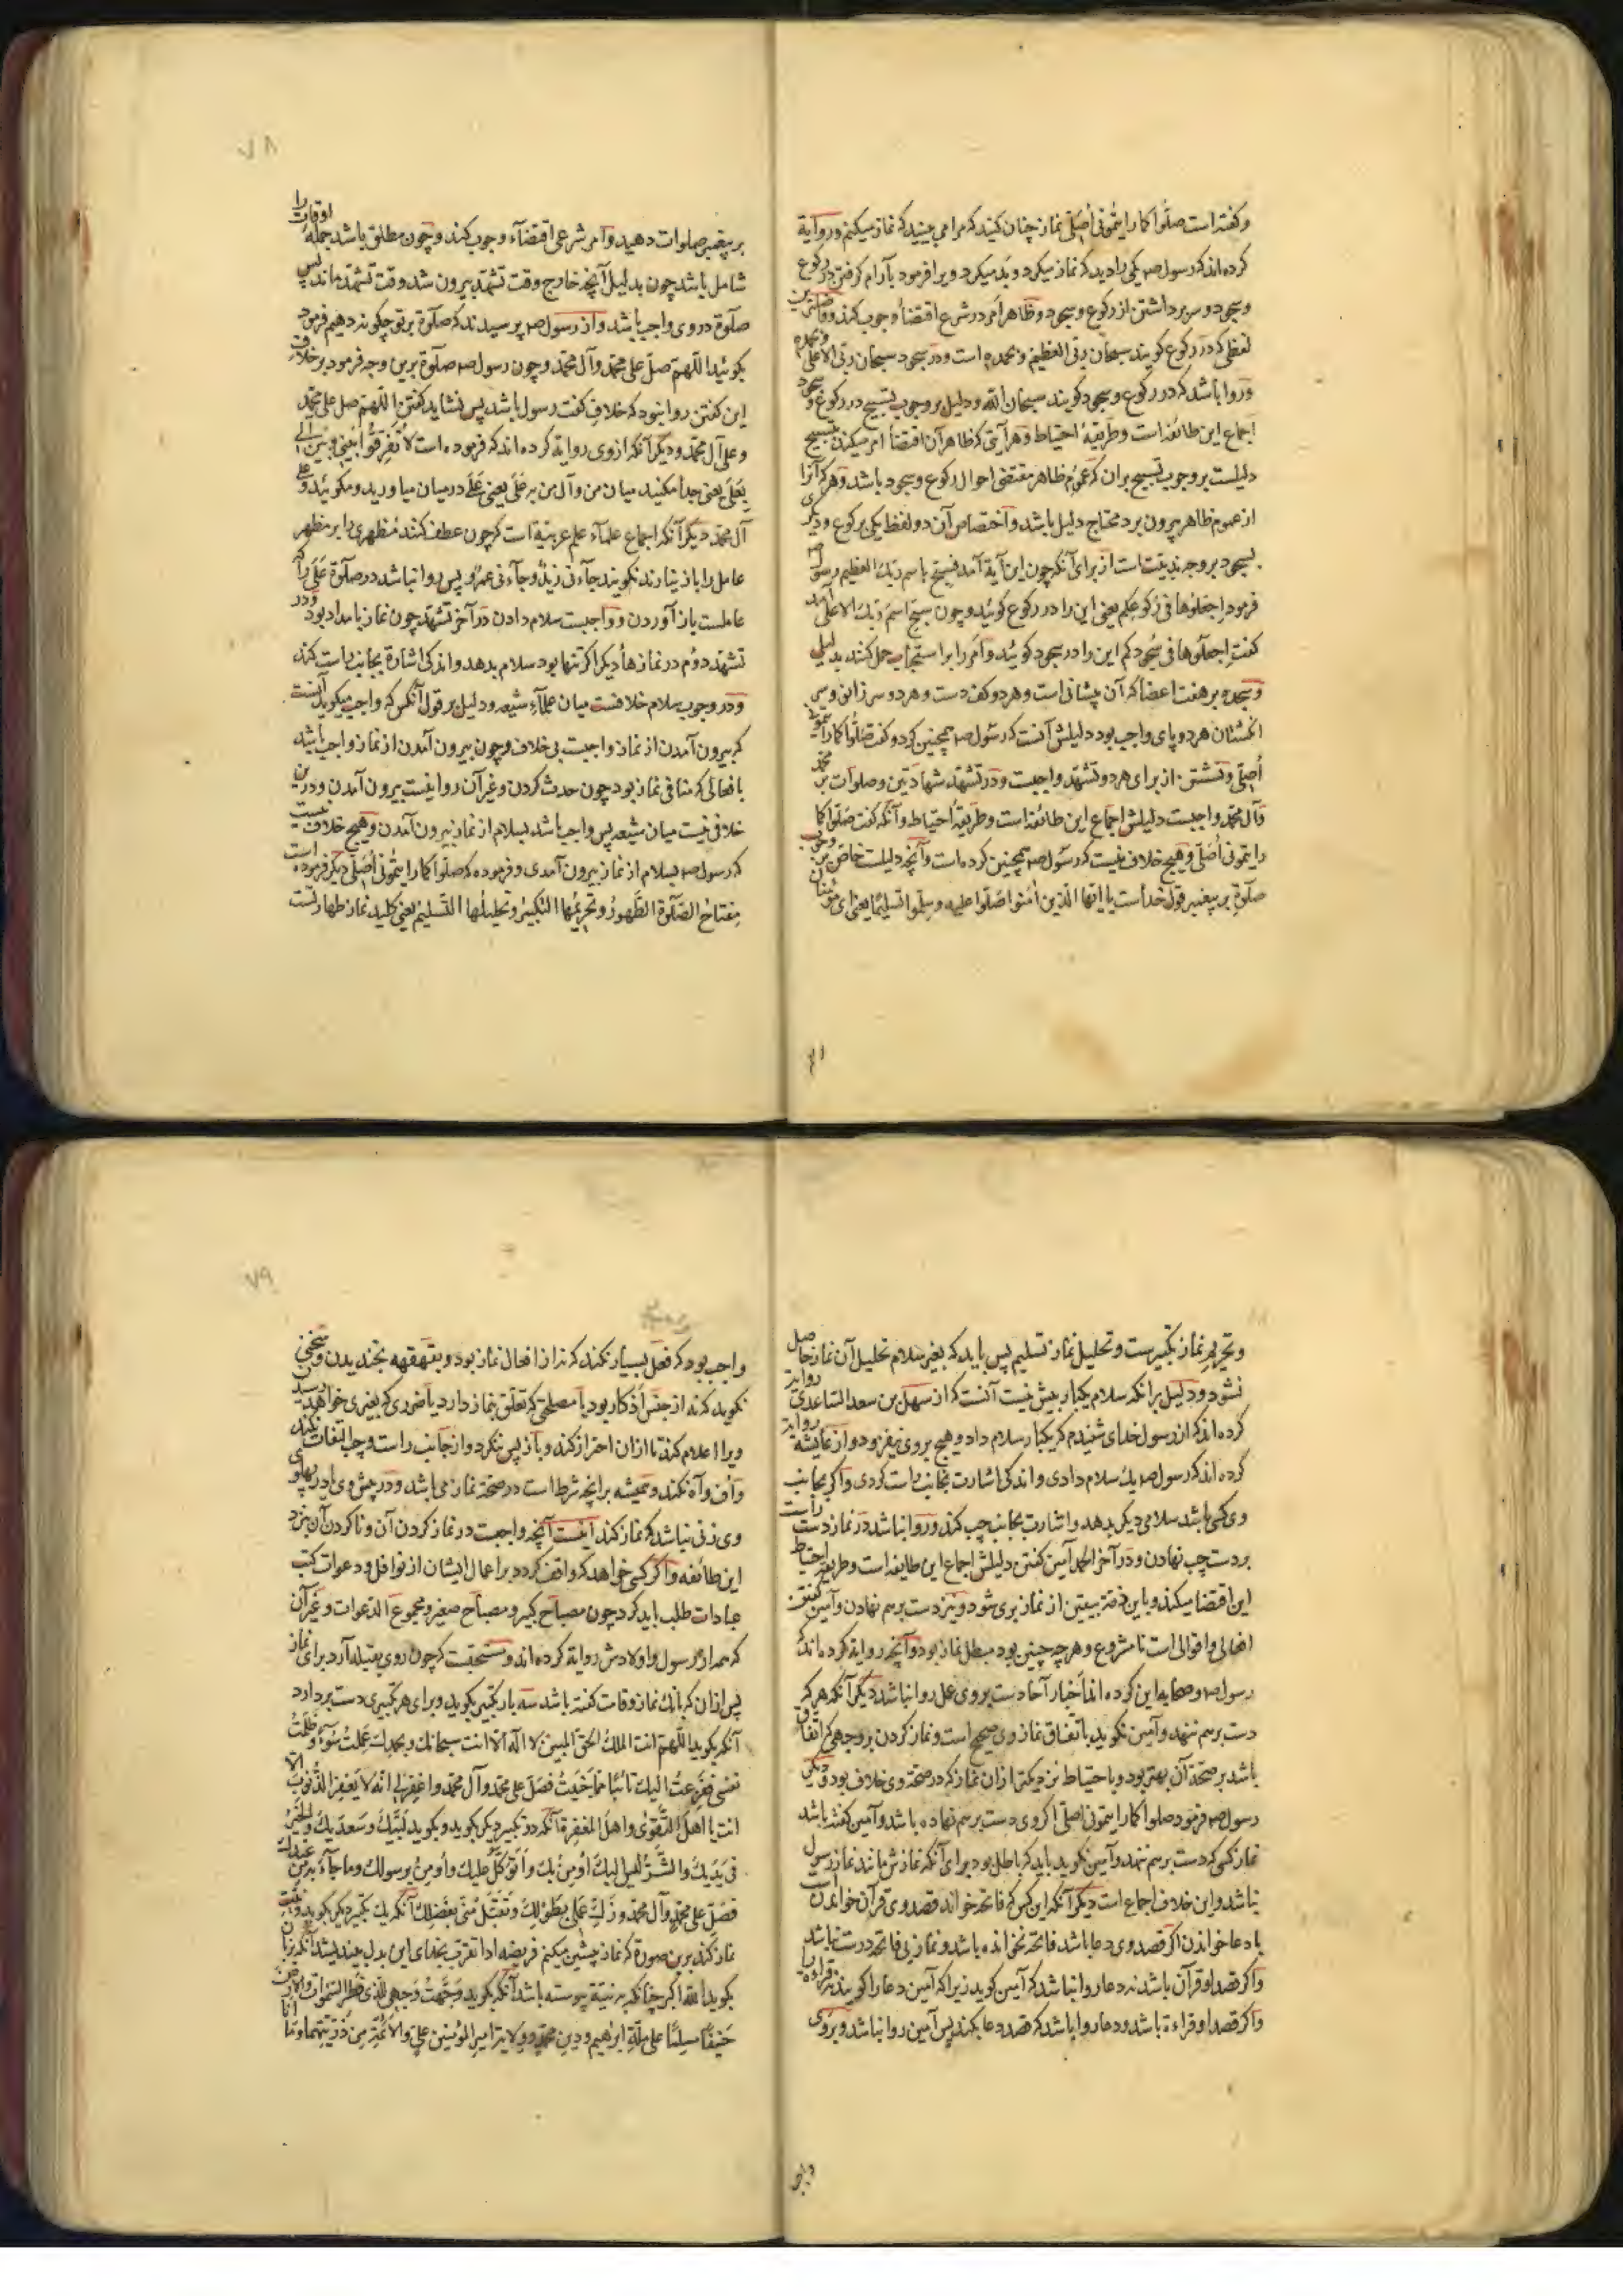 وگفته است صلّوا کما رایتمونی أصلّی نماز چنان کنید که مرا می بینید که نماز میکنم و روایة
کرده اند که رسول صم یکی را دید که نماز میکرد و بد میکرد ویرا فرمود بآرام گرفتن در رکوع
وسجود و سر برداشتن از رکوع و سجود و ظاهر امر در شرع اقتضاء وجوب کند و فاضلترین
لفظی که در رکوع گویند سبحان ربّی العظیم و بحمده است و در سجود سبحان ربّی الاعلی و بحمده
و روا باشد که در رکوع و سجود گویند سبحان الله و دلیل بر وجوب تسبیح در رکوع و سجود
اجماع این طائفه است و طریقهٔ احتیاط و هر آیتی که ظاهر آن اقتضاء امر میکند بتسبیح
دلیلست بر وجوب تسبیح بران که عموم ظاهر مقتضی احوال رکوع و سجود باشد و هر که آنرا
از عموم ظاهر بیرون برد محتاج دلیل باشد و اختصاص آن دو لفظ یکی برکوع و دیگری
بسجود بر وجه ندبیّت است از برای آنکه چون این آیة آمد فسبّح باسم ربّک العظیم رسول صم
فرمود اجعلوها فی رکوعکم یعنی این را در رکوع گوئید و چون سبّح اسم ربّک الاعلی آمد
گفت اجعلوها فی سجودکم این را در سجود گوئید و امر را بر استحباب حمل کنند بدلیل
و سجده بر هفت اعضا که آن پیشانی است و هر دو کف دست و هر دو سر زانو و سر
انگشتان هر دو پای واجب بود دلیلش آنست که رسول صم همچنین کرد و گفت صلّوا کما رایتمونی
أصلّی و نشستن از برای هر دو تشهّد واجبست و در تشهّد شهادتین و صلوات بر محمّد
و آل محمّد واجبست دلیلش اجماع این طائفه است و طریقهٔ احتیاط و آنکه گفت صلّوا کما
رایتمونی اصلّی و هیچ خلاف نیست که رسول صم همچنین کرده است و آنچه دلیلست خاص بر وجوب
صلوة بر پیغمبر قول خداست یا ایها الّذین آمنوا صلّوا علیه و سلّموا تسلیمًا یعنی ای مؤمنان
۷۸
بر پیغمبر صلوات دهید و امر شرعی اقتضاء وجوب کند و چون مطلق باشد جملهٔ اوقات را
شامل باشد چون بدلیل آنچه خارج وقت تشهّد بیرون شد وقت تشهّد ماند پس
صلوة در وی واجب باشد و از رسول صم پرسیدند که صلوة بر تو چگونه دهیم فرمود
بگوئید اللّهم صلّ علی محمّد و آل محمّد و چون رسول صم صلوة برین وجه فرمود بر خلاف
این گفتن روا نبود که خلاف گفت رسول باشد پس نشاید گفتن اللّهم صل علی محمّد
و علی آل محمّد و دیگر آنکه از وی روایة کرده اند که فرموده است لا تفرّقوا بینی و بین آلی
بعلی یعنی جدا مکنید میان من و آل من بر علی یعنی علی در میان میاورید و مگوئید و علی
آل محمّد دیگر آنکه اجماع علماء علم عربیّة است که چون عطف کنند مظهری را بر مظهر
عامل را باز نیارند نگویند جآءنی زیدٌ و جآءنی عمرٌو پس روا نباشد در صلوة علی را که
عاملست باز آوردن و واجبست سلام دادن در آخر تشهّد چون نماز بامداد بود و در
تشهّد دوم در نمازهاء دیگر اگر تنها بود سلام بدهد و اندکی اشارة بجانب راست کند
و در وجوب سلام خلافست میان علمآء شیعه و دلیل بر قول آنکس که واجب میگوید آنست
که بیرون آمدن از نماز واجبست بی خلاف و چون بیرون آمدن از نماز واجب باشد
بافعالی که منافی نماز بود چون حدث کردن و غیر آن روا نیست بیرون آمدن و درین
خلافی نیست میان شیعه پس واجب باشد بسلام از نماز بیرون آمدن و هیچ خلاف نیست
که رسول صم بسلام از نماز بیرون آمدی و فرموده که صلّوا کما رایتمونی أصلّی دیگر فرموده است
مفتاح الصّلوة الطّهور و تحریمها التّکبیر و تحلیلها التّسلیم یعنی کلید نماز طهارتست
و تحریم نماز تکبیرست و تحلیل نماز تسلیم پس باید که بغیر سلام تحلیل آن نماز حاصل
نشود و دلیل برانکه سلام یکبار بیش نیست آنست که از سهل بن سعد الساعدی روایة
کرده اند که از رسول خدای شنیدم که یکبار سلام داد و هیچ بروی نیفزود و از عایشه روایة
کرده اند که رسول صم یک سلام دادی و اندکی اشارت بجانب راست کردی و اگر بجانب
وی کسی باشد سلامی دیگر بدهد و اشارت بجانب چپ کند و روا نباشد در نماز دست راست
بر دست چپ نهادن و در آخر الحمد آمین گفتن دلیلش اجماع این طایفه است و طریقهٔ احتیاط
این اقتضا میکند و باین ذمّة بیقین از نماز بری شود و نیز دست برهم نهادن و آمین گفتن
افعالی و اقوالی است نا مشروع و هر چه چنین بود مبطل نماز بود و آنچه روایة کرده اند که
رسول صم و صحابه این کرده اند اخبار آحادست بروی عمل روا نباشد دیگر آنکه هر که
دست برهم ننهد و آمین نگوید باتفاق نماز وی صحیح است و نماز کردن بر وجهی که اتّفاق
باشد بر صحّة آن بهتر بود و باحتیاط نزدیکتر ازان نماز که در صحّة وی خلاف بود و دیگر
رسول صم فرمود صلوا کما رایتمونی اصلّی اگر وی دست برهم نهاده باشد و آمین گفته باشد
نماز کسی که دست برهم ننهد و آمین نگوید باید که باطل بود برای آنکه نمازش مانند نماز رسول
نباشد و این خلاف اجماع است دیگر آنکه این کس که فاتحه خواند قصد وی قرآن خواندن است
یا دعا خواندن اگر قصد وی دعا باشد فاتحه نخوانده باشد و نماز بی فاتحه درست نباشد
و اگر قصد او قرآن باشد نه دعا روا نباشد که آمین گوید زیرا که آمین دعا را گویند نه قراءة را
و اگر قصد او قراءة باشد و دعا روا باشد که قصد دعا نکند پس آمین روا نباشد و بروی
واجب
۷۹
واجب بود که فعل بسیار نکند که نه از افعال نماز بود و بقهقهه نخندیدن و سخنی
نگوید که نه از جنس أذکار بود یا مصلحتی که تعلّق بنماز دارد یا ضرری که بغیری خواهد رسید
ویرا اعلام کند تا ازان احتراز کند و باز پس ننگرد و از جانب راست و چپ التفات نکند
و أف و آه نکند و همیشه برانچه شرط است در صحّة نماز می باشد و در پیش وی یا در پهلوی
وی زنی نباشد که نماز کند اینست آنچه واجبست در نماز کردن آن و ناکردن آن نزد
این طائفه و اگر کسی خواهد که واقف گردد بر اعمال ایشان از نوافل و دعوات کتب
عبادات طلب باید کرد چون مصباح کبیر و مصباح صغیر و مجموع الدعوات و غیر آن
که همه از رسول و اولادش روایة کرده اند و مستحبست که چون روی بقبله آرد برای نماز
پس ازان که بانک نماز و قامت گفته باشد سه بار تکبیر بگوید و برای هر تکبیری دست بردارد
آنگه بگوید اللّهم انت الملک الحقّ المبین لا اله الّا انت سبحانک و بحمدک عملت سوءً و ظلمت
نفسی فَفَزِعتُ الیک تائبًا ممّا جنیت فصلّ علی محمّد و آل محمّد و اغفرلی انّه لا یغفر الذّنوب الّا
انت یا اهل التّقوی و اهل المغفرة آنگه دو تکبیر دیگر بگوید و بگوید لبّیک و سعدیک و الخیر
فی یدیک و الشّر لیس الیک اُومن بک و اتوکّل علیک و اُومن برسولک و ما جاء به من عندک
فصلّ علی محمّد و آل محمّد و زکّ عملی بطولک و تقبّل منّی بفضلک آنگه یک تکبیر دیگر بگوید و نیّت
نماز کند برین صورة که نماز پیشین میکنم فریضه ادا تقرّب بخدای این بدل بیندیشد آنگه بزبان
بگوید الله اکبر چنانکه به نیّة پیوسته باشد آنگه بگوید وجّهت وجهی للّذی فطر السّموات و الارض
حنیفًا مسلمًا علی ملّة ابراهیم و دین محمّد و ولایة امیر المؤمنین علی و الائمّة من ذرّیتهما و ما انا